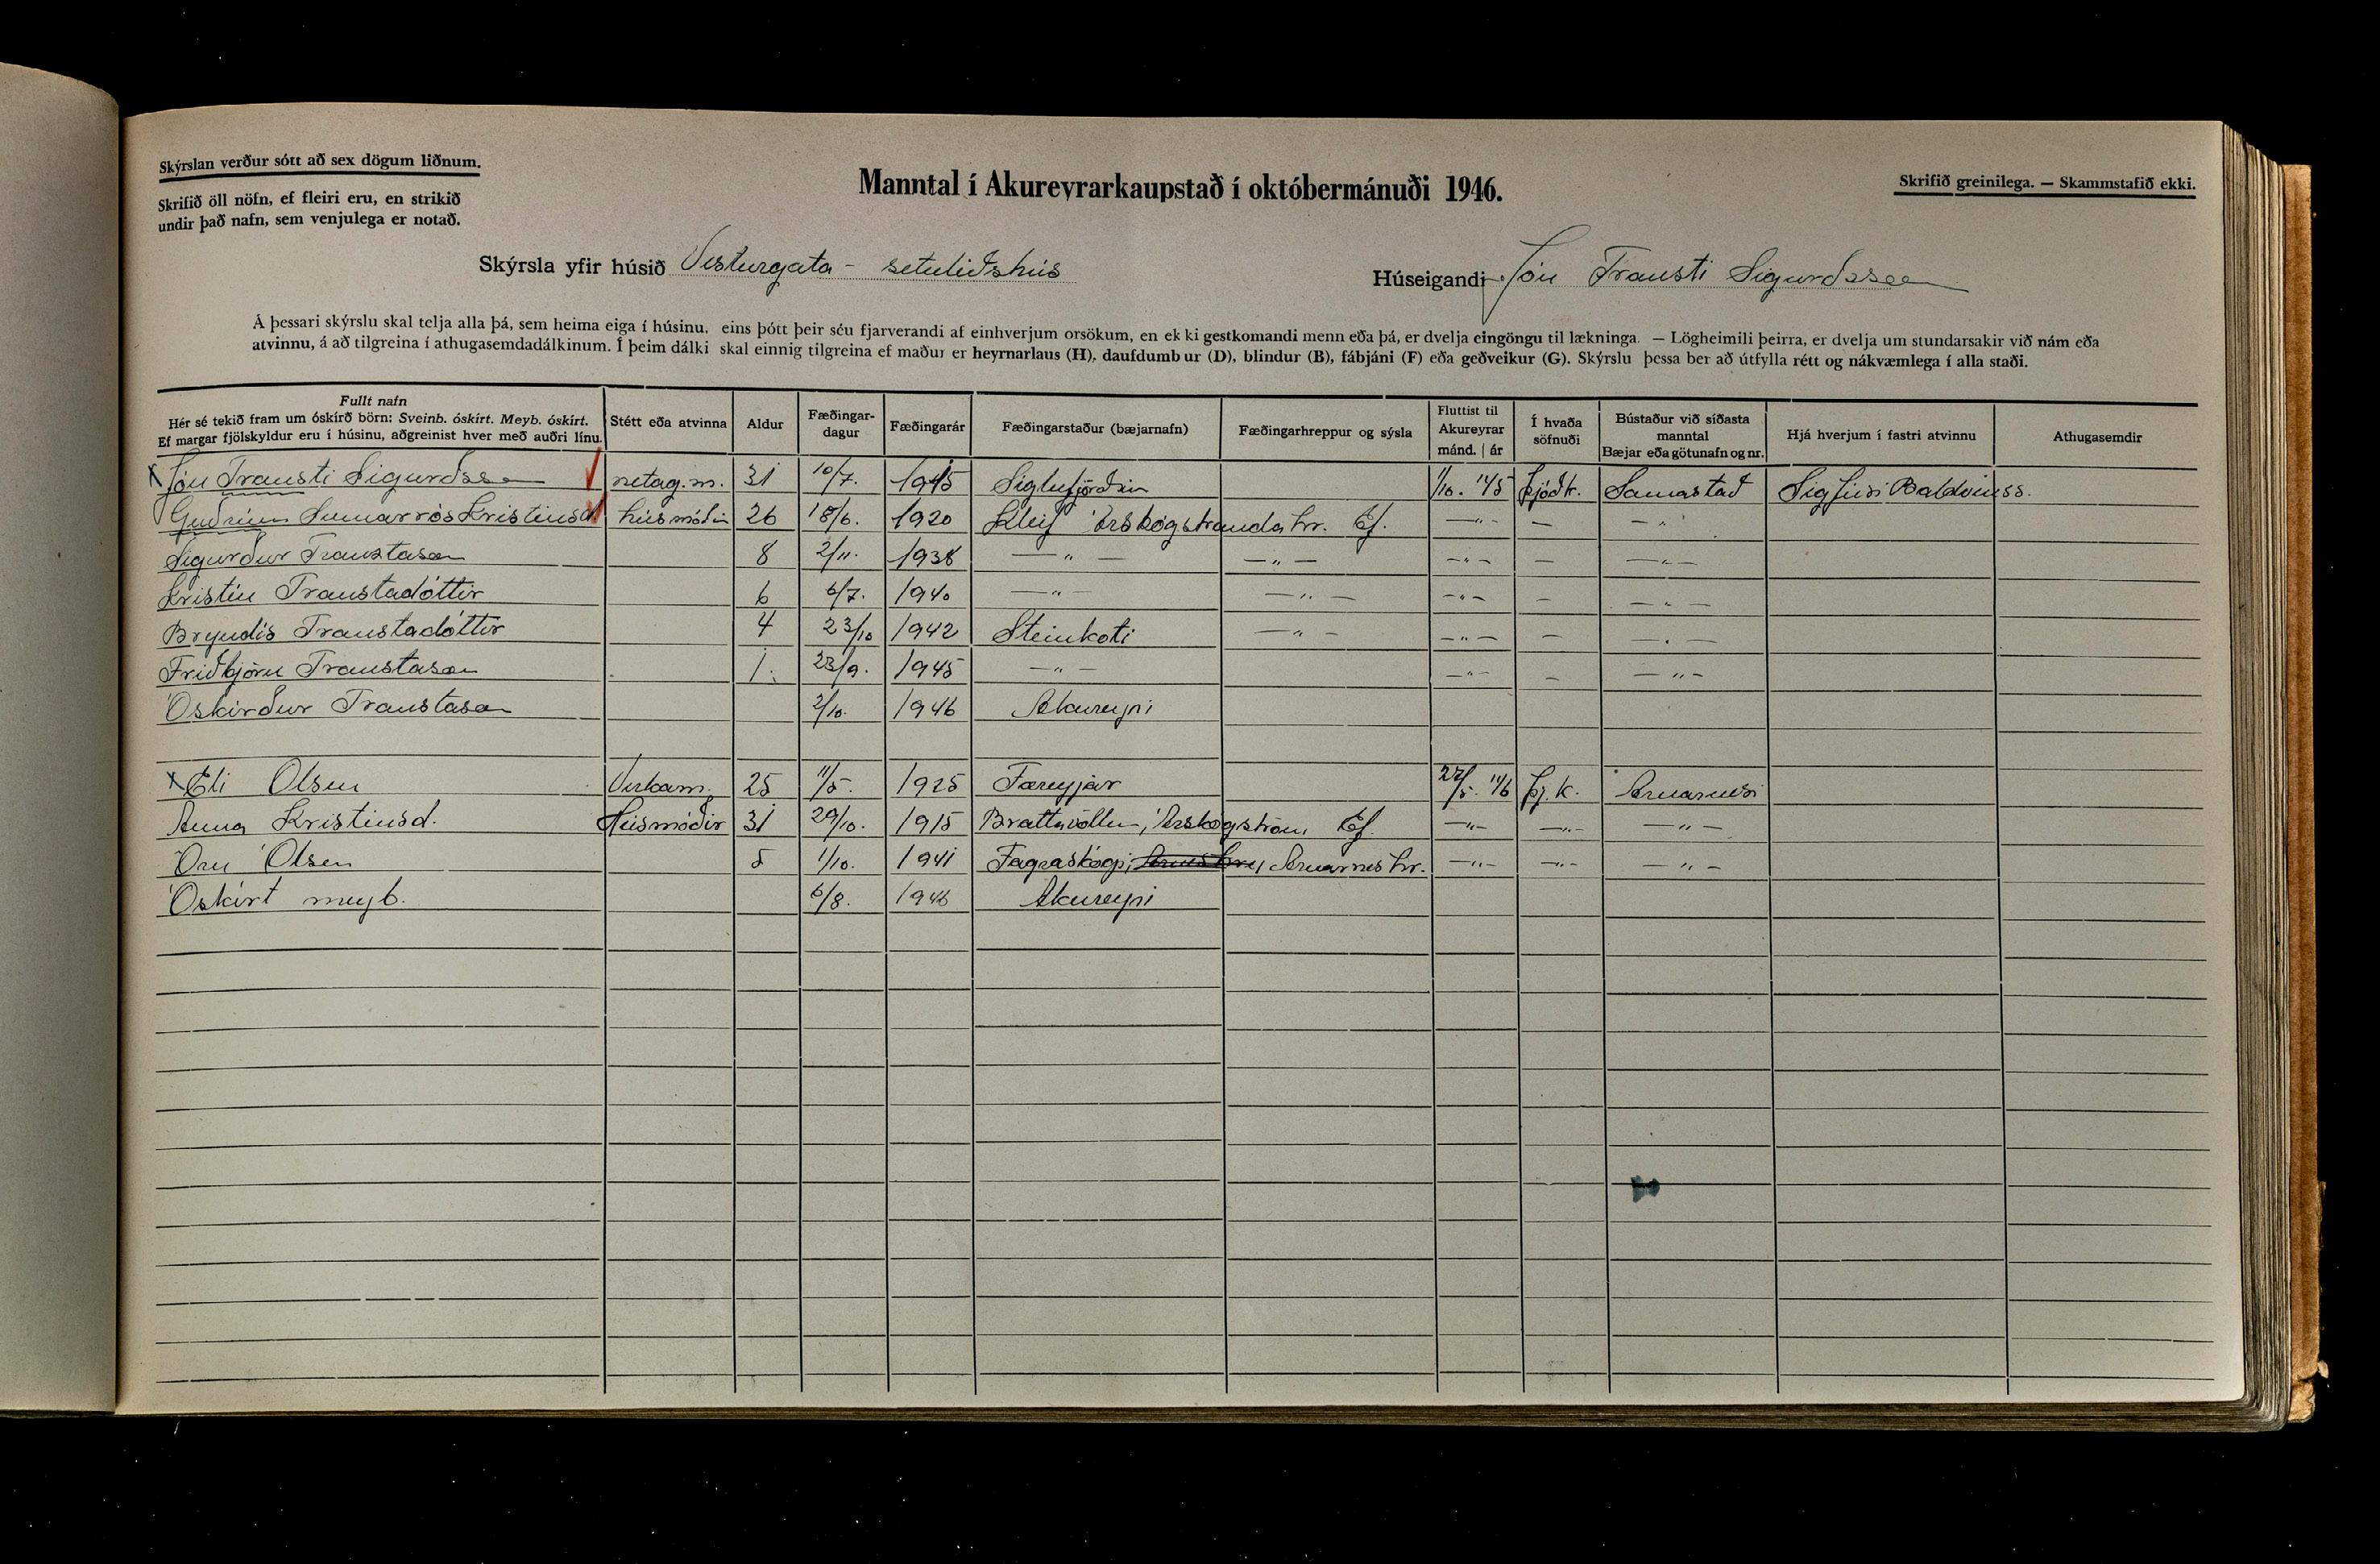 Skýrslan verður sótt að sex dögum liðnum.
Skrifið öll nöfn, ef fleiri eru, en strikið
undir það nafn, sem venjulega er notað.
Manntal í Akureyrarkaupstað í októbermánuði 1946.
Skrifið greinilega. — Skammstafið ekki.
Skýrsla yfir húsið Vesturgata - setuliðshús
Húseigandi Jón Trausti Sigurðsson
Á þessari skýrslu skal telja alla þá, sem heima eiga í húsinu, eins þótt þeir séu fjarverandi af einhverjum orsökum, en ekki gestkomandi menn eða þá, er dvelja eingöngu til lækninga. — Lögheimili þeirra, er dvelja um stundarsakir við nám eða
atvinnu, á að tilgreina í athugasemdadálkinum. Í þeim dálki skal einnig tilgreina ef maður er heyrnarlaus (H), daufdumbur (D), blindur (B), fábjáni (F) eða geðveikur (G). Skýrslu þessa ber að útfylla rétt og nákvæmlega í alla staði.
Fullt nafn
Hér sé tekið fram um óskírð börn: Sveinb. óskírt. Meyb. óskírt.
Ef margar fjölskyldur eru í húsinu, aðgreinist hver með auðri línu.
Stétt eða atvinna
Aldur
Fæðingar-
dagur
Fæðingarár
Fæðingarstaður (bæjarnafn)
Fæðingarhreppur og sýsla
Fluttist til
Akureyrar
mánd. | ár
Í hvaða
söfnuði
Bústaður við síðasta
manntal
Bæjar eða götunafn og nr.
Hjá hverjum í fastri atvinnu
Athugasemdir
x Jón Trausti Sigurðsson netag.m. 31 10/7. 1915 Siglufjörður 1/10. '45 Þjóðk. Samastað Sigfúsi Baldvinss.
Guðrún Sumarrós Kristinsd. húsmóðir 26 18/6. 1920 Kleif Árskógstrandahr. Ef. —"— — —"
Sigurður Traustason 8 2/11. 1938 —"— —"— —"— — —"—
Kristín Traustadóttir 6 6/7. 1940 —"— —"— —"— — —"—
Bryndís Traustadóttir 4 23/10 1942 Steinkoti —"— —"— — —"—
Friðbjörn Traustason 1. 23/9. 1945 —"— —"— — —"—
Óskírður Traustason 2/10. 1946 Akureyri
x Eli Olsen Verkam. 25 11/5. 1925 Færeyjar 27/5. '46 Þj.k. Arnarnesi
Anna Kristinsd. Húsmóðir 31 29/10. 1915 Brattavöllum, Árskógströnd Ef. —"— —"— —"—
Örn Olsen 5 1/10. 1941 Fagraskógi, Arnarneshr. —"— —"— —"—
Óskírt meyb. 6/8. 1946 Akureyri